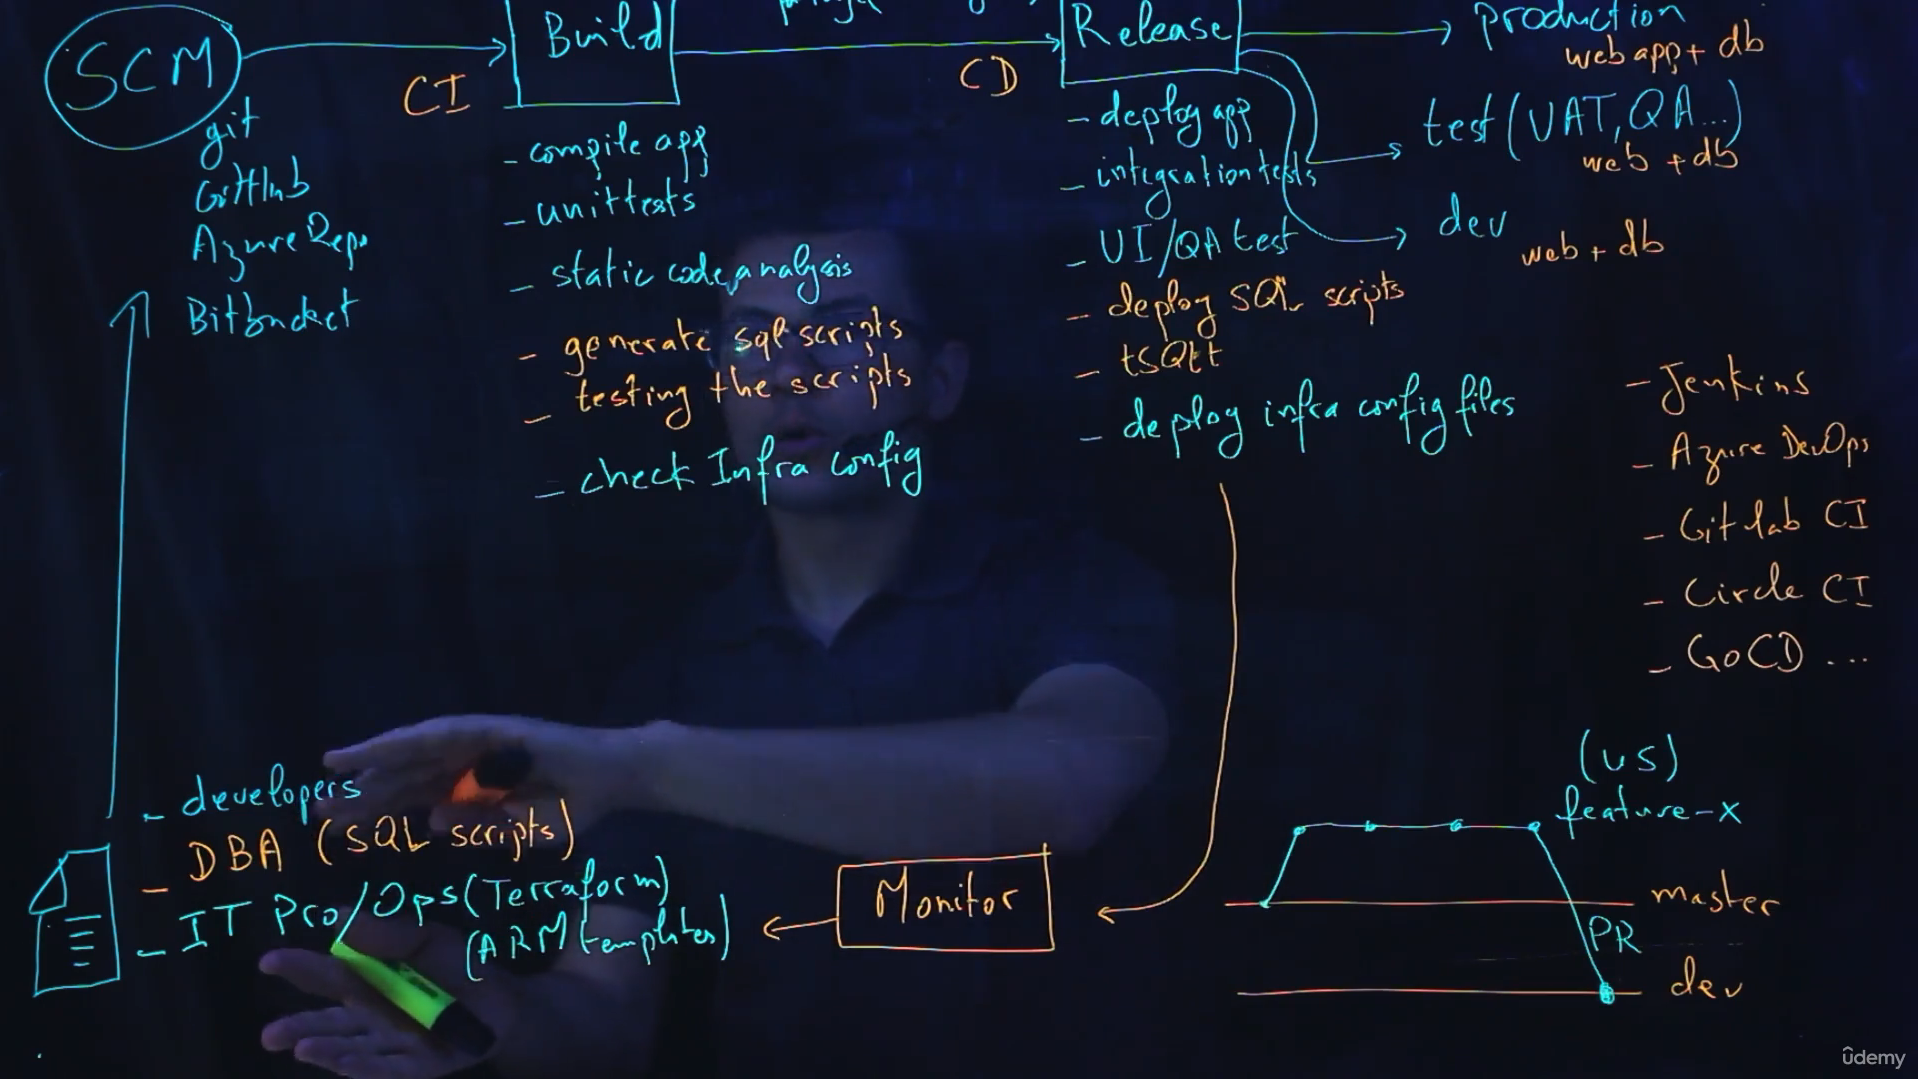 SCM
CI
Build
CD
Release
production
web app + db
git
GitHub
Azure Repo
Bitbucket
- compile app
- unit tests
- static code analysis
- generate sql scripts
- testing the scripts
- check Infra config
- deploy app
- integration tests
- UI/QA test
- deploy SQL scripts
- tSQLt
- deploy infra config files
test (UAT, QA...)
web + db
dev
web + db
- Jenkins
- Azure DevOps
- Gitlab CI
- Circle CI
- GoCD ...
- developers
- DBA (SQL scripts)
- IT Pro/Ops (Terraform)
(ARM templates)
Monitor
(US)
feature-x
master
PR
dev
udemy